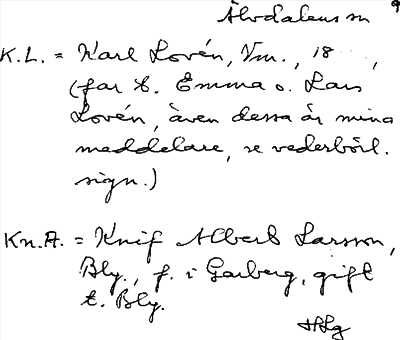 Älvdalens sn 9
K.L. = Karl Lovén, Vm., 18 ,
(far t. Emma o. Lars
Lovén, även dessa är mina
meddelare, se vederbörl.
sign.)
Kn.A. = Knif Albert Larsson,
Bly., f. i Garberg, gift
t. Bly.